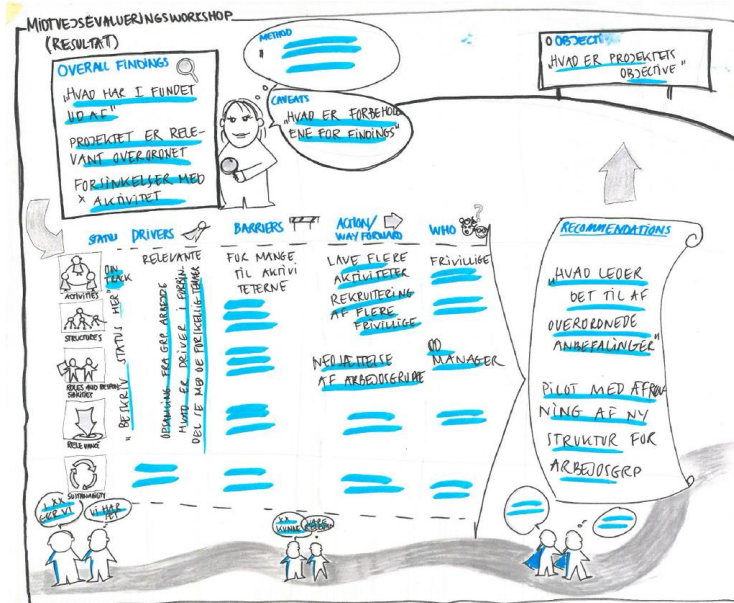 MIDTVEJSEVALUERINGSWORKSHOP
(RESULTAT)
OVERALL FINDINGS
"HVAD HAR I FUNDET
UD AF"
PROJEKTET ER RELE-
VANT OVERORDNET
FORSINKELSER MED
X AKTIVITET
METHOD
CAVEATS
"HVAD ER FORBEHOLD
ENE FOR FINDINGS"
OBJECTI
"HVAD ER PROJEKTETS
OBJECTIVE"
STATUS
DRIVERS
BARRIERS
ACTION/
WAY FORWARD
WHO
?
ACTIVITIES
STRUCTURES
ROLES AND
RELEVANCE
ON
TRACK
"BESKRIV STATUS HER"
RELEVANTE
OPSAMLING FRA GRP. ARBEJDE
HVAD ER DRIVER I FORBIN.
DELSE MED DE FORSKELLIGE TEMAER
FOR MANGE
TIL AKTIVI
TETERNE
LAVE FLERE
AKTIVITETER
REKRUTTERING
AF FLERE
FRIVILLIGE
NEDSÆTTELSE
AF ARBEJDSGRUPPE
FRIVILLIGE
MANAGER
RECOMMENDATIONS
"HVAD LEDER
DET TIL AF
OVERORDNEDE
ANBEFALINGER"
PILOT MED AFPRØV
NING AF NY
STRUKTUR FOR
ARBEJDSGRP
VI HAR
KUNNE